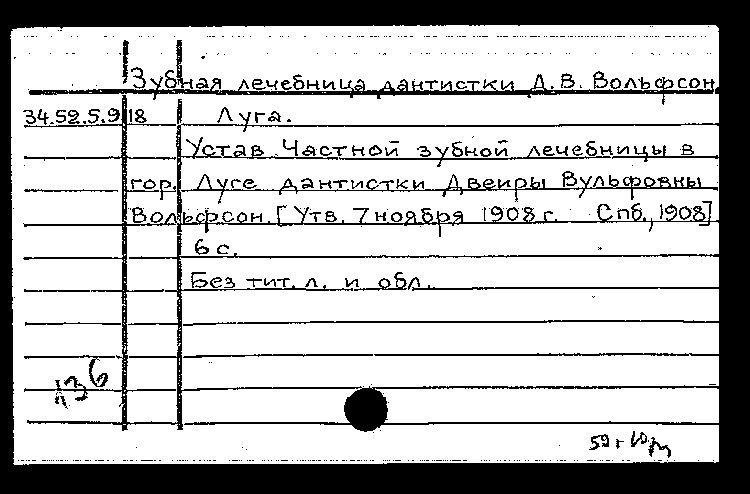 Зубная лечебница дантистки Д. В. Вольфсон.
34.52.5.918 Луга.
Устав Частной зубной лечебницы в
гор. Луге дантистки Двейры Вульфовны
Вольфсон. [Утв. 7 ноября 1908 г. Спб., 1908]
6 с.
Без тит. л. и обл.
136